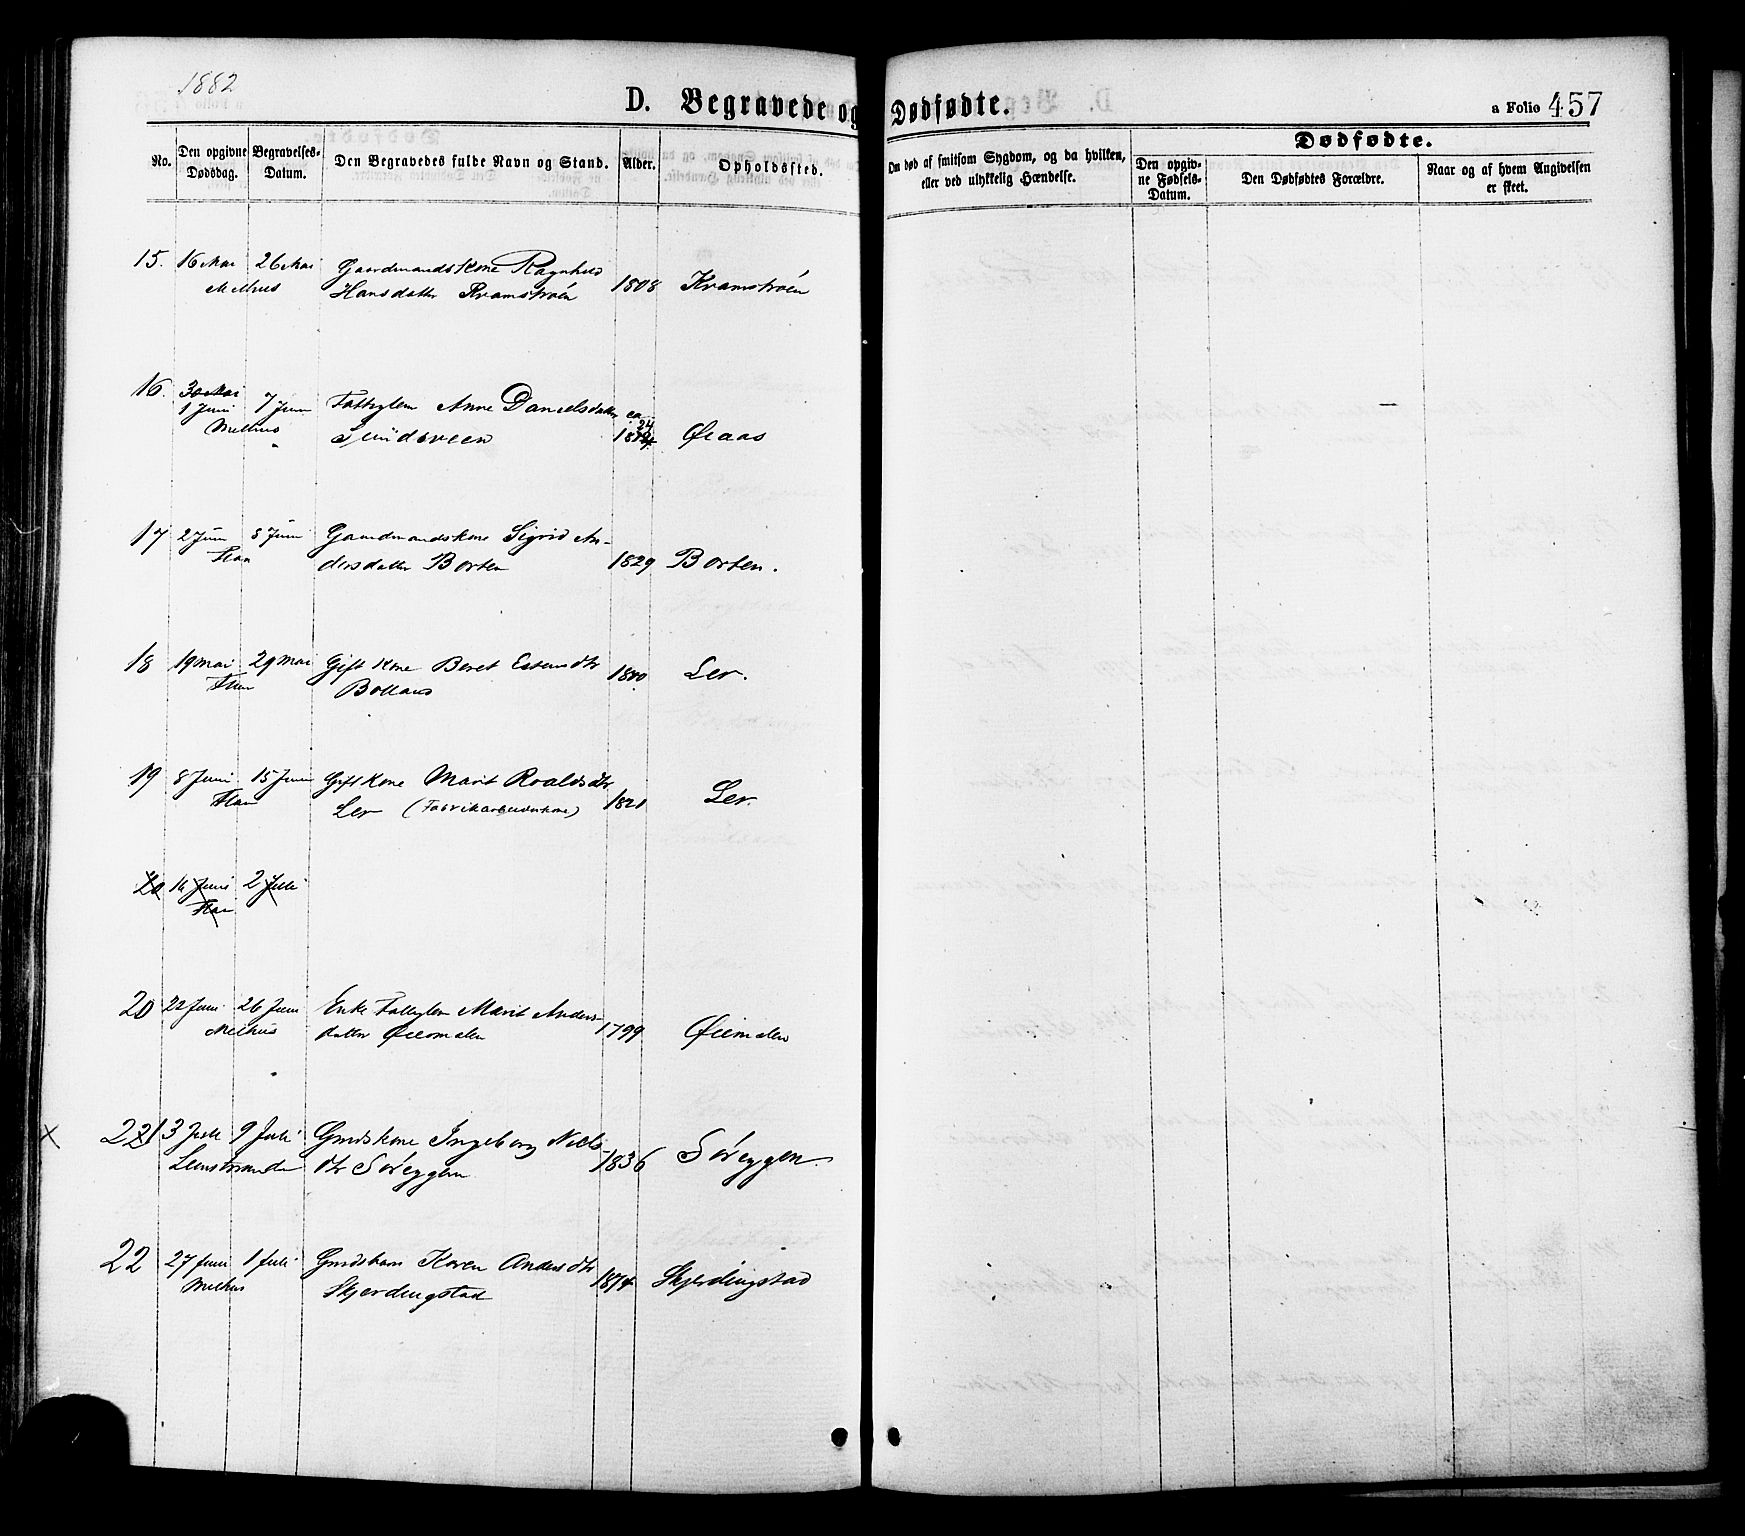 1882
D. Begravede og Dødfødte.
a Folio 457
No.
Den opgivne Dødsdag.
Begravelses-Datum.
Den Begravedes fulde Navn og Stand.
Alder.
Opholdssted.
Om død af smitsom Sygdom, og da hvilken,
eller ved ulykkelig Hændelse.
Dødfødte.
Den opgiv-
ne Fødsels-
Datum.
Den Dødfødtes Forældre.
Naar og af hvem Angivelsen
er skeet.
15. 16 Mai 26 Mai Gaardmandskone Ragnhild
Melhus Hansdatter Kramstrøen 1808 Kramstrøen
16. 30 Mai
1 Juni 7 Juni Fattiglem Anne Danielsdatter ca
Melhus 24
Øiaas
17 2 Juni 8 Juni Gaardmandskone Sigrid An-
Flaa dersdatter Borten 1829 Borten.
18 19 Mai 29 Mai Gift Kone Beret Estensdtr
Flaa 1800 Ler.
19 8 Juni 15 Juni Gift Kone Marit Roaldsdtr
Flaa Ler (Fabrikarbeiderkone) 1821 Ler.
20 16 Juni 2 Juli
Flaa
20 22 Juni 26 Juni Enke Fattiglem Marit Anders-
Melhus datter Øiemalen 1799 Øiemalen
x 221 3 Juli 9 Juli Gmdskone Ingeborg Niels-
Leinstranden dtr Søreggen 1836 Søreggen.
22 27 Juni 1 Juli Gmdsbarn Karen Andersdtr
Melhus Skjerdingstad 1874 Skjerdingstad